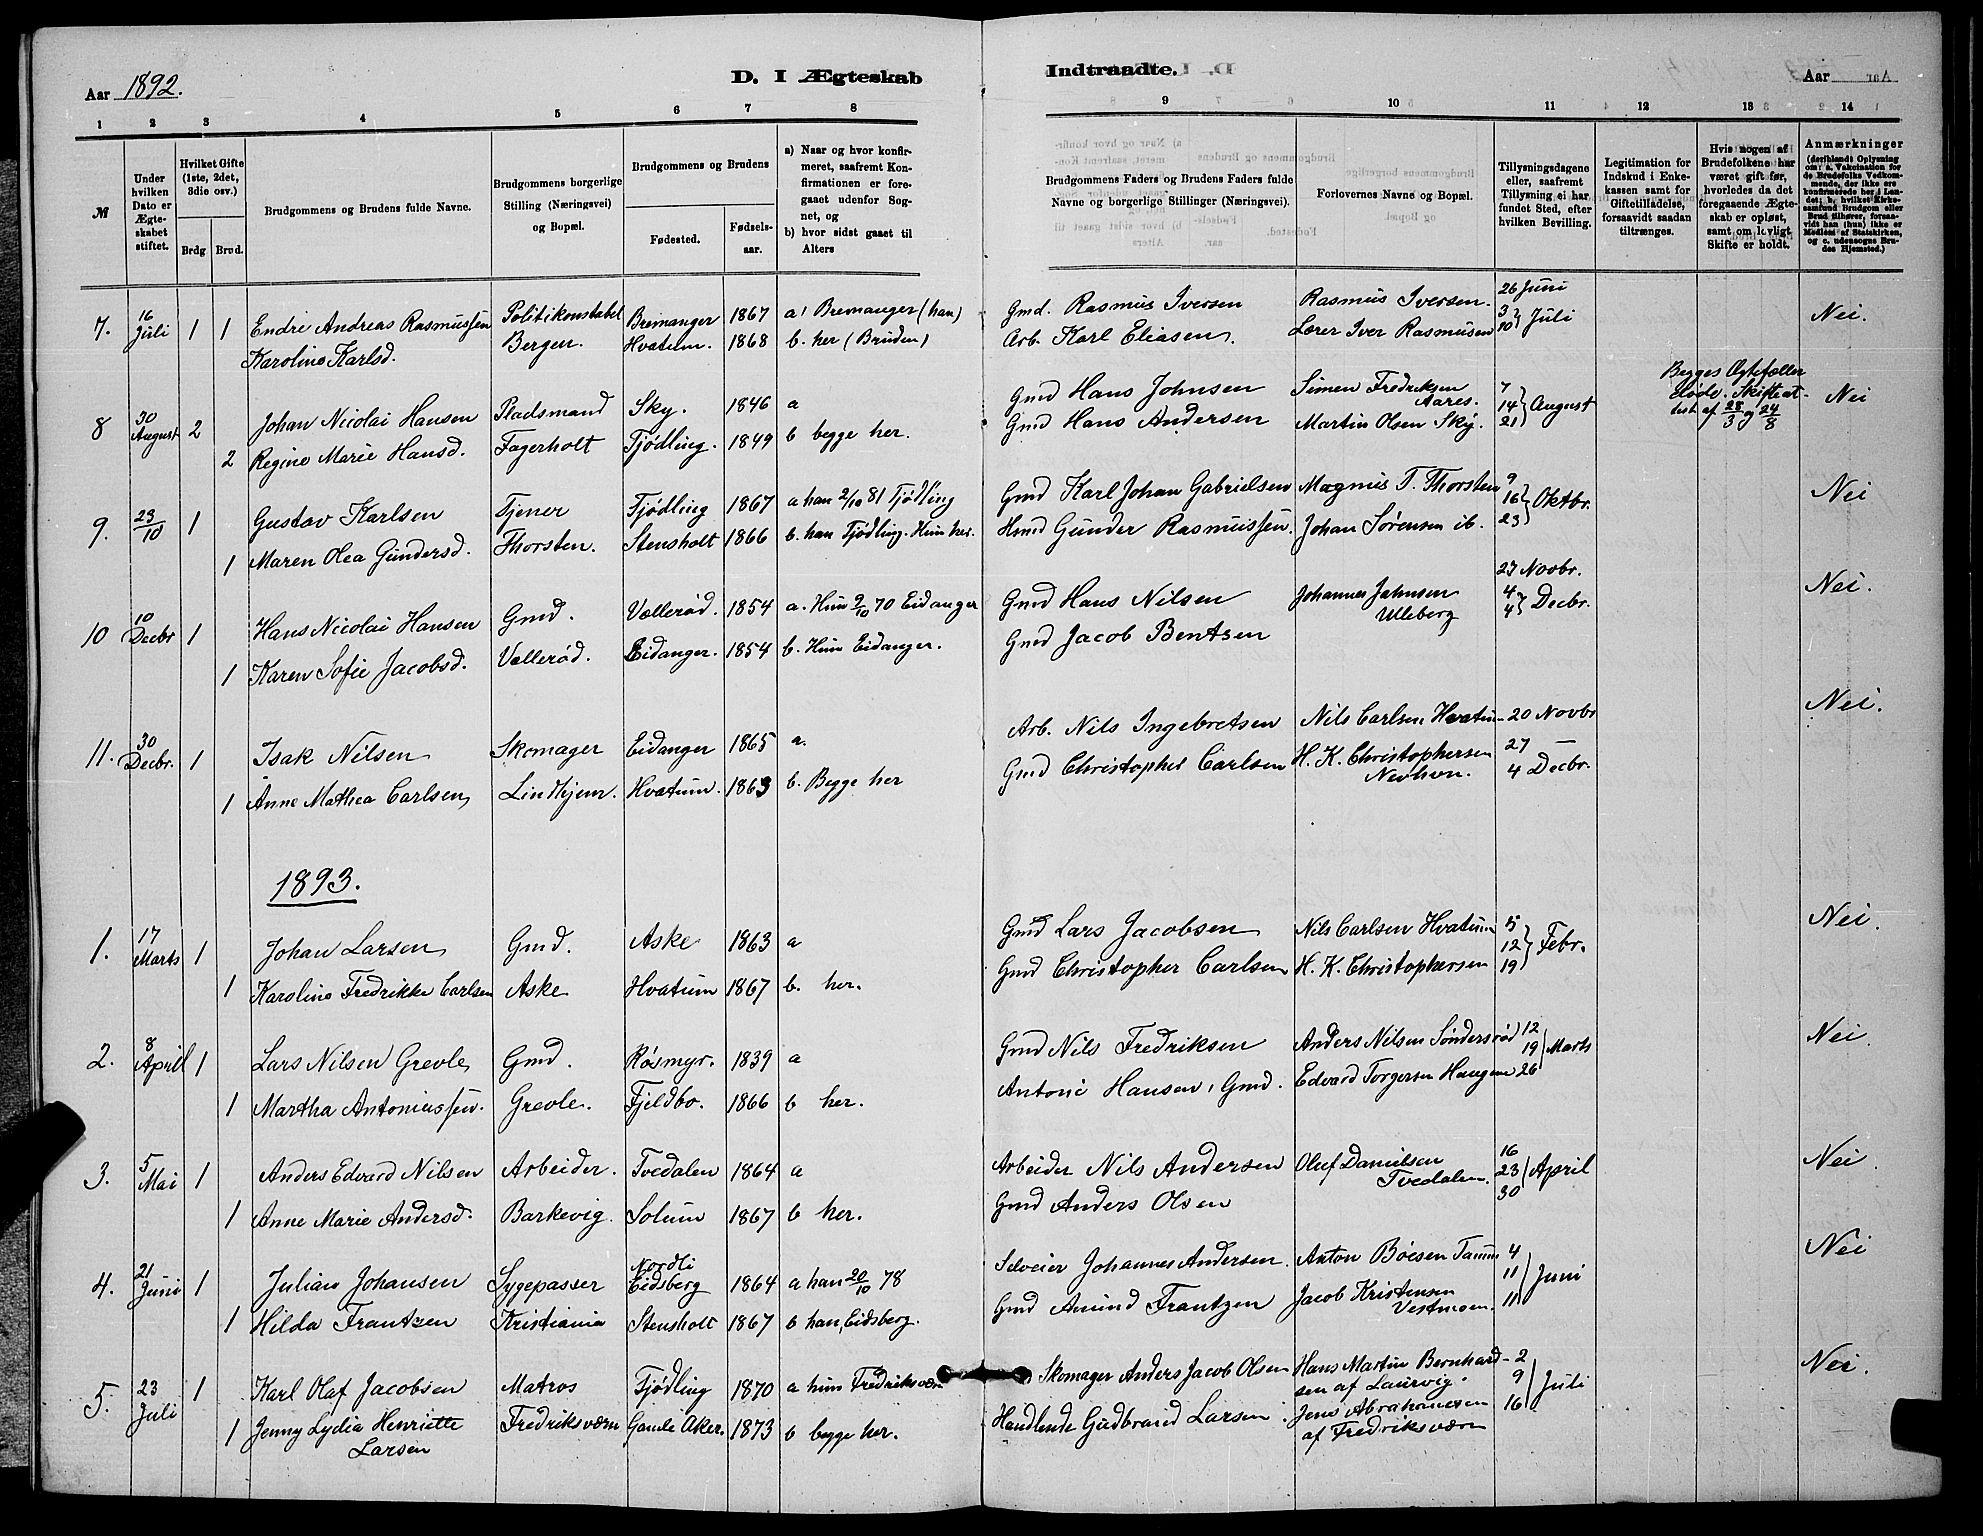 Aar 1892.
D. I Ægteskab
1 2 3 4 5 6 7 8
№
Under hvilken Dato er Ægteskabet stiftet.
Hvilket Gifte (1ste, 2det, 3die osv.)
Brdg Brud.
Brudgommens og Brudens fulde Navne.
Brudgommens borgerlige Stilling (Næringsvei) og Bopæl.
Brudgommens og Brudens
Fødested. Fødselsaar.
a) Naar og hvor konfirmeret, saafremt Konfirmationen er foregaaet udenfor Sognet, og
b) hvor sidst gaaet til Alters
7. 16 Juli 1 1 Endre Andreas Rasmussen Politikonstabel Bremanger 1867 a) Bremanger (han)
Karoline Karlsd. Bergen. Hvatum. 1868 b. her (Bruden)
8 30 August 2 Johan Nicolai Hansen Pladsmand Sky. 1846 a
2 Regine Marie Hansd. Fagerholt Tjødling. 1849 b begge her.
9. 23/10 1 Gustav Karlsen Tjener Tjødling 1867 a han 2/10 81 Tjødling
1 Maren Olea Gundersd. Thorsten. Stensholt 1866 b. han Tjødling. Hun her.
10 10 Decbr 1 Hans Nicolai Hansen Gmd. Vallerød. 1854 a. Hun 9/10 70 Eidanger
1 Karen Sofie Jacobsd. Vallerød. Eidanger. 1854 b. Hun Eidanger.
11. 30 Decbr. 1 Isak Nilsen Skomager Eidanger 1865 a.
1 Anne Mathea Carlsen Lindhjem. Hvatum. 1863 b. Begge her
1893.
1. 17 Marts 1 Johan Larsen Gmd. Aske 1863 a
1 Karoline Fredrikke Carlsen Aske Hvatum 1867 b. her.
2. 8 April 1 Lars Nilsen Grevle Gmd. Røsmyr. 1839 a
1 Martha Antoniussen. Grevle. Fjeldbo. 1866 b her.
3. 5 Mai 1 Anders Edvard Nilsen Arbeider. Tvedalen 1864 a
1 Anne Marie Andersd. Barkevig. Solum 1867 b her.
4. 21 Juni 1 Julian Johansen Sygepasser Nordli Eidsberg 1864 a han 20/10 78
1 Hilda Frantzen Kristiania Stensholt 1867 b han, Eidsberg.
5. 23 Juli 1 Karl Olaf Jacobsen Matros Tjødling 1870 a hun Fredriksværn
1 Jenny Lydia Henriette Larsen Fredriksværn Gamle Aker. 1873 b begge her.
Indtraadte. Aar
9 10 11 12 13 14
Brudgommens Faders og Brudens Faders fulde Navne og borgerlige Stillinger (Næringsvei).
Forlovernes Navne og Bopæl.
Tillysningsdagene eller, saafremt Tillysning ei har fundet Sted, efter hvilken Bevilling.
Legitimation for Indskud i Enkekassen samt for Giftetilladelse, forsaavidt saadan tiltrænges.
Hvis nogen af Brudefolkene har været gift før, hvorledes da det foregaaende Ægteskab er opløst, samt om lovligt Skifte er holdt.
Anmærkninger (deriblandt Oplysning om: a. Vakcination for de Brudefolks Vedkommende, der ikke ere konfirmerede her i Landet; b. hvilket Kirkesamfund Brudgom eller Brud tilhører, forsaavidt han (hun) ikke er Medlem af Statskirken, og c. udensogns Brudes Hjemsted.)
Gmd. Rasmus Iversen Rasmus Iversen. 26 Juni Nei.
Arb. Karl Eliasen. Lærer Iver Rasmusen 3 10 Juli
Gmd Hans Johnsen Simen Fredriksen Aares. 7 14 21 August Begges Ægtefæller døde. Skifteattest af 28/3 og 24/8 Nei
Gmd Hans Andersen Martin Olsen Sky.
Gmd Karl Johan Gabrielsen Magnus T. Thorsten 9 16 23 Oktbr. Nei
Hmd Gunder Rasmussen. Johan Sørensen ib.
Gmd Hans Nilsen Johannes Jahnsen Ulleberg 27 Novbr. 4 4 Decbr. Nei.
Gmd Jacob Bentsen
Arb. Nils Ingebretsen Nils Carlsen Hvatum 20 Novbr Nei.
Gmd Christopher Carlsen H. K. Christophersen 27 — 4 Decbr.
Gmd Lars Jacobsen Nils Carlsen Hvatum 5 12 19 Febr. Nei.
Gmd Christopher Carlsen H. K. Christophersen
Gmd Nils Fredriksen Anders Nilsen Søndersrød 12 19 26 Marts Nei.
Antoni Hansen, Gmd. Edvard Torgersen Haugene
Arbeider Nils Andersen Oluf Danielsen Tvedalen. 16 23 30 April Nei.
Gmd Anders Olsen
Selveier Johannes Andersen. Anton Böesen Tanum 4 11 11 Juni Nei
Gmd Amund Frantzen Jacob Kristensen Vestmoen.
Skomager Anders Jacob Olsen Hans Martin Bernhardsen af Laurvig. 2 9 16 Juli Nei.
Handlende Gudbrand Larsen. Jens Abrahamsen af Fredriksværn